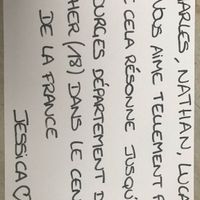 HARLES, NATHAN, LUCA
VOUS AIME TELLEMENT F
E CELA RÉSONNE JUSQU'
OURGES DÉPARTEMENT D
HER (18) DANS LE CEN
DE LA FRANCE
JESSICA♡